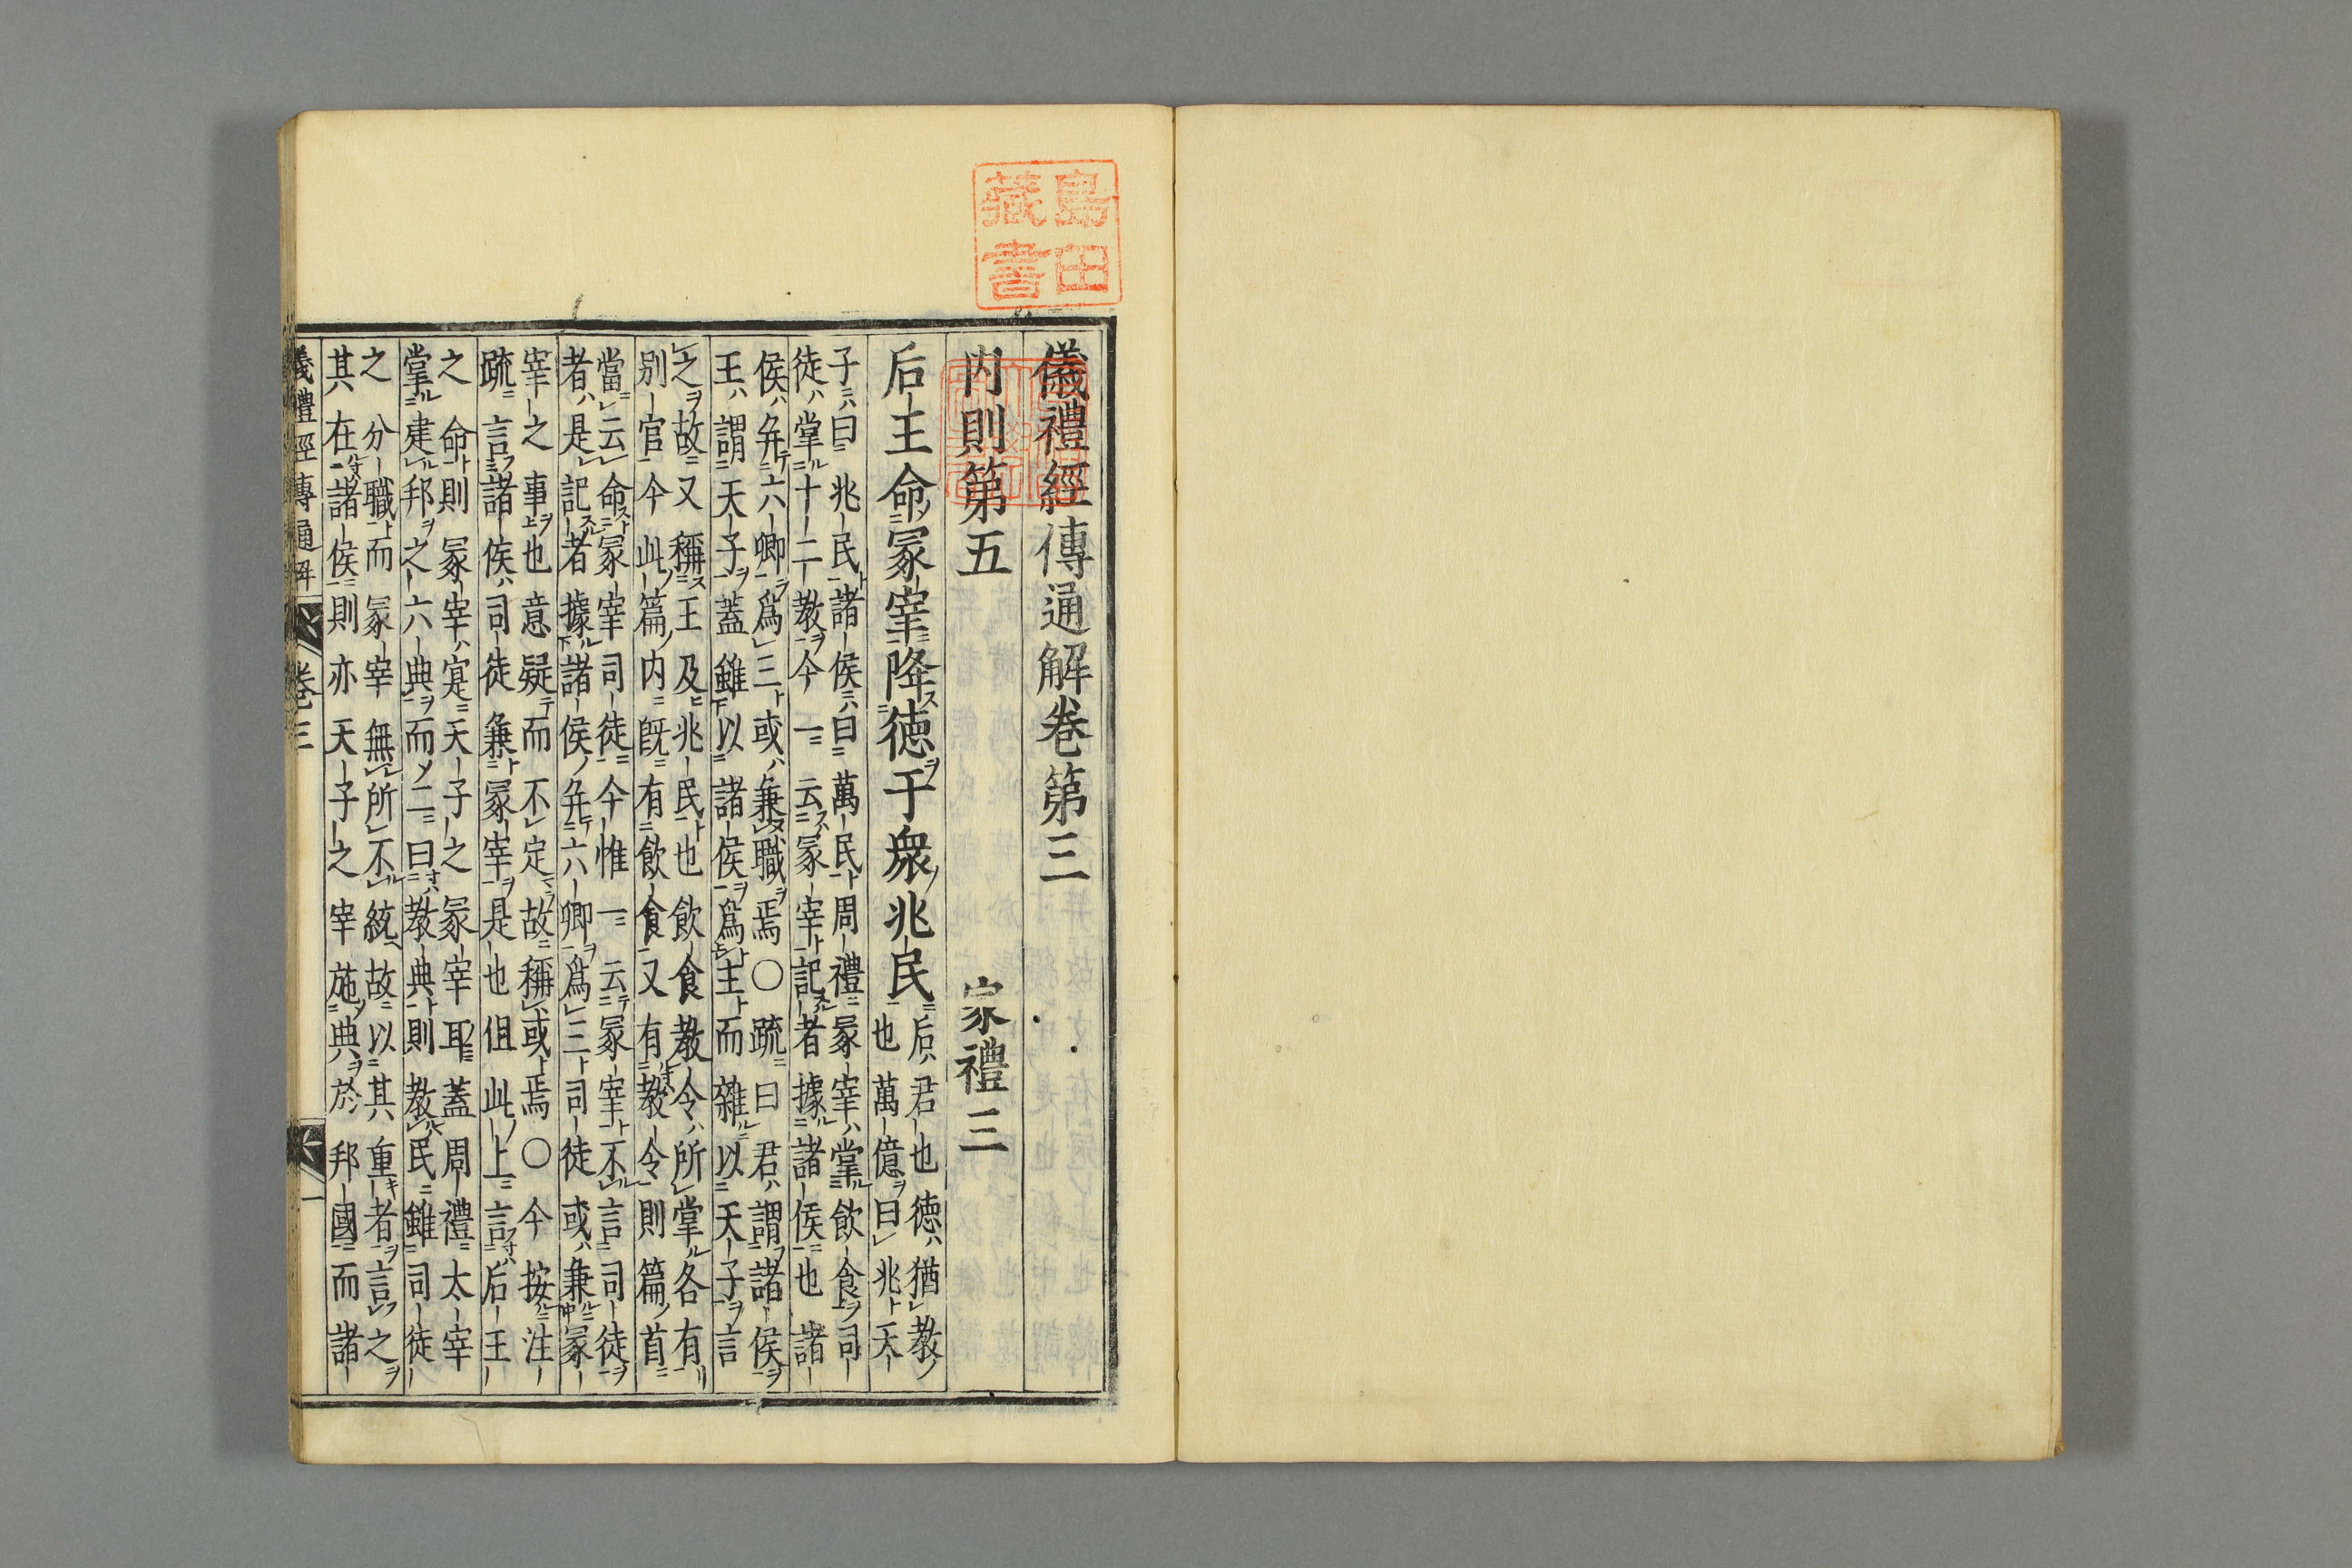 島田
藏書
儀禮經傳通解卷第三
内則第五　家禮三
后王命冢宰降徳于衆兆民
后君也徳猶教
也萬億曰兆天
子曰兆民諸侯曰萬民周禮冢宰掌飲食司
徒掌十二教今一云冢宰記者據諸侯也諸
侯并六卿爲三或兼職焉〇疏曰君謂諸侯
王謂天子蓋雖以諸侯爲主而雜以天子言
之故又稱王及兆民也飲食教令所掌各有
别官今此篇内既有飲食又有教令則篇首
當云命冢宰司徒今惟一云冢宰不言司徒
者是記者據諸侯并六卿爲三司徒或兼冢
宰之事也意疑而不定故稱或焉〇今按注
疏言諸侯司徒兼冢宰是也但此上言后王
之命則冢宰寔天子之冢宰耳蓋周禮太宰
掌建邦之六典而二曰教典則教民雖司徒
之分職而冢宰無所不統故以其重者言之
其在諸侯則亦天子之宰施典於邦國而諸
儀禮經傳通解　卷三　一